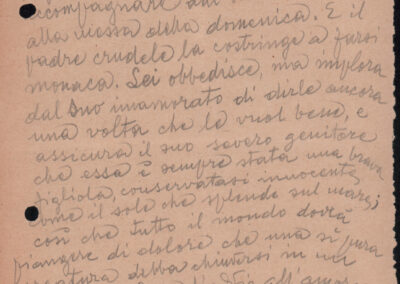 accompagnare
alla messa della domenica. E il
padre crudele la costringe a farsi
monaca. Lei obbedisce, ma implora
dal suo innamorato di dirle ancora
una volta che le vuol bene, e
assicura il suo severo genitore
che essa è sempre stata una brava
figliola, conservatasi innocente
come il sole che splende sul mare;
così che tutto il mondo dovrà
piangere di dolore che una sì pura
creatura debba chiudersi in un
all'amor